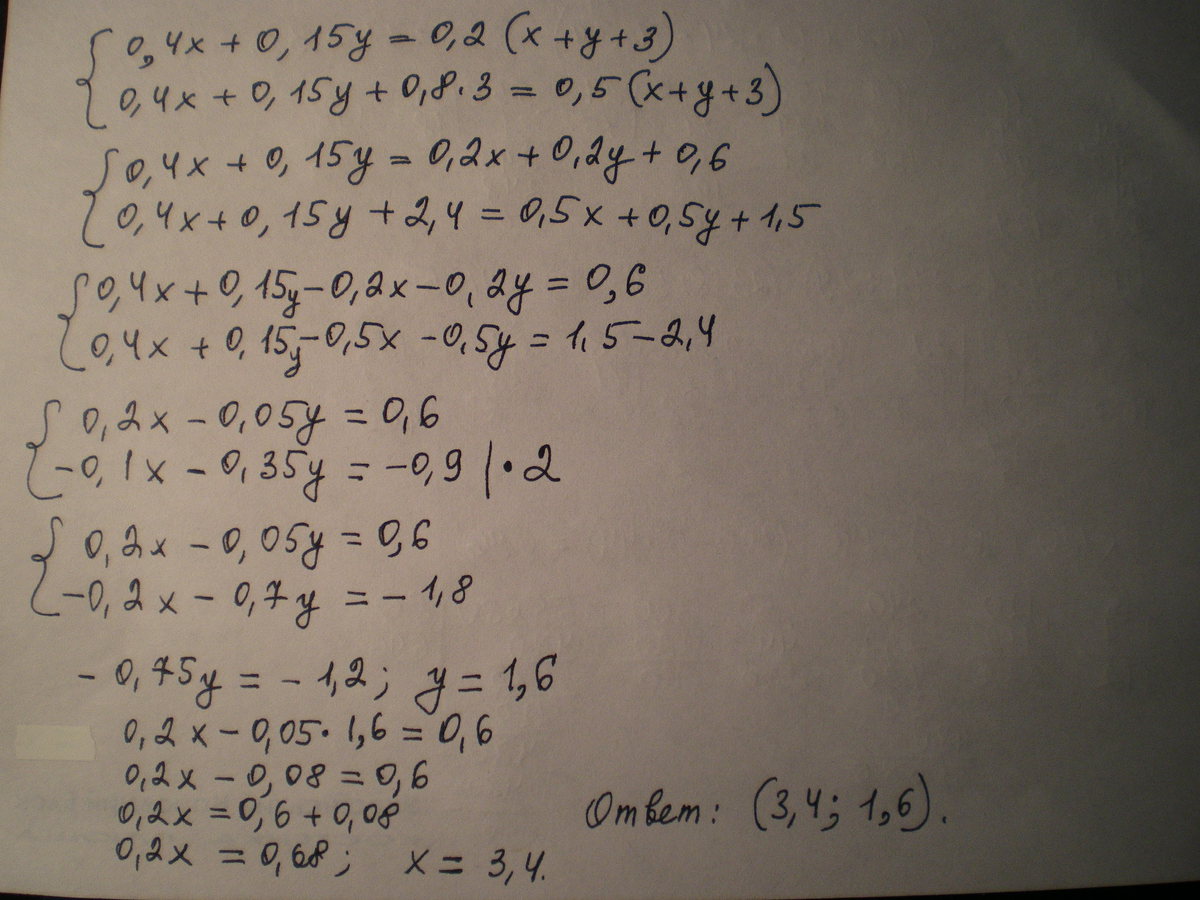 0,4x + 0,15y = 0,2 (x+y+3)
0,4x + 0,15y + 0,8·3 = 0,5 (x+y+3)
0,4x + 0,15y = 0,2x + 0,2y + 0,6
0,4x + 0,15y + 2,4 = 0,5x + 0,5y + 1,5
0,4x + 0,15y - 0,2x - 0,2y = 0,6
0,4x + 0,15y - 0,5x - 0,5y = 1,5 - 2,4
0,2x - 0,05y = 0,6
-0,1x - 0,35y = -0,9 |·2
0,2x - 0,05y = 0,6
-0,2x - 0,7y = -1,8
-0,75y = -1,2; y = 1,6
0,2x - 0,05·1,6 = 0,6
0,2x - 0,08 = 0,6
0,2x = 0,6 + 0,08
0,2x = 0,68; x = 3,4.
Ответ: (3,4; 1,6).